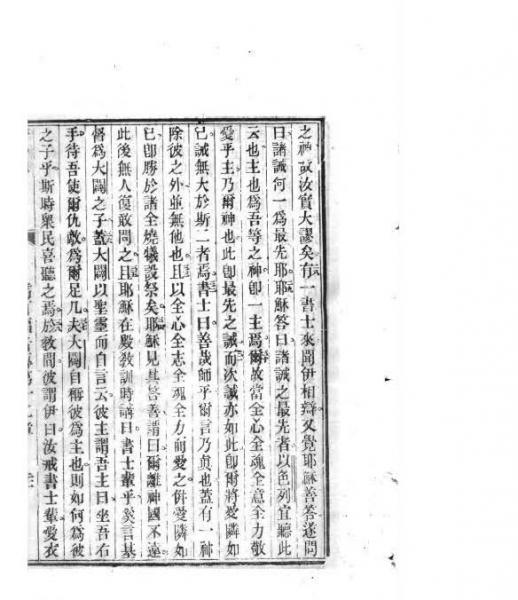 之神故汝實大謬矣有一書士來聞伊相辯又覺耶穌善答遂問
曰諸誡何一為最先耶耶穌答曰諸誡之最先者以色列宜聽此
云也主也為吾等之神即一主焉爾故當全心全魂全意全力敬
愛乎主乃爾神也此即最先之誡而次誡亦如此即爾將愛隣如
己誡無大於斯二者焉書士曰善哉師乎爾言乃真也蓋有一神
除彼之外並無他也且以全心全志全魂全力而愛之併愛隣如
己即勝於諸全燒犧設祭矣耶穌見其答善謂曰爾離神國不遠
此後無人復敢問之且耶穌在殿教訓時謂曰書士輩乎奚言基
督為大闢之子蓋大闢以聖靈而自言云彼主謂吾主曰坐吾右
手待吾使爾仇敵為爾足几夫大闢自稱彼為主也則如何為彼
之子乎斯時衆民喜聽之焉於教間彼謂伊曰汝戒書士輩愛衣